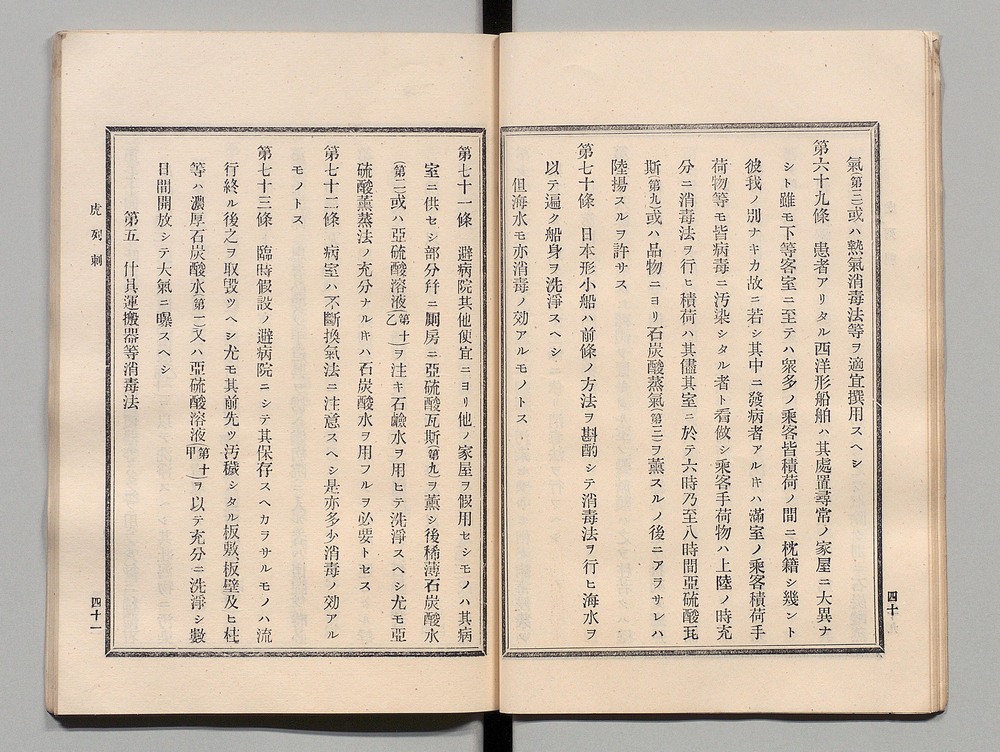 氣(第三)或ハ熱氣消毒法等ヲ適宜撰用スヘシ
第六十九條　患者アリタル西洋形船舶ハ其處置尋常ノ家屋ニ大異ナ
シト雖モ下等客室ニ至テハ衆多ノ乘客皆積荷ノ間ニ枕籍シ幾ント
彼我ノ別ナキカ故ニ若シ其中ニ發病者アルキハ滿室ノ乘客積荷手
荷物等モ皆病毒ニ汚染シタル者ト看做シ乘客手荷物ハ上陸ノ時充
分ニ消毒法ヲ行ヒ積荷ハ其儘其室ニ於テ六時乃至八時間亞硫酸瓦
斯(第九)或ハ品物ニヨリ石炭酸蒸氣(第三)ヲ薰スルノ後ニアラサレハ
陸揚スルヲ許サス
第七十條　日本形小船ハ前條ノ方法ヲ斟酌シテ消毒法ヲ行ヒ海水ヲ
以テ遍ク船身ヲ洗淨スヘシ
但海水モ亦消毒ノ効アルモノトス
四十
第七十一條　避病院其他便宜ニヨリ他ノ家屋ヲ假用セシモノハ其病
室ニ供セシ部分幷ニ厠房ニ亞硫酸瓦斯(第九)ヲ薰シ後稀薄石炭酸水
(第二)或ハ亞硫酸溶液(第十乙)ヲ注キ石鹼水ヲ用ヒテ洗淨スヘシ尤モ亞
硫酸薰蒸法ノ充分ナルキハ石炭酸水ヲ用フルヲ必要トセス
第七十二條　病室ハ不斷換氣法ニ注意スヘシ是亦多少消毒ノ効アル
モノトス
第七十三條　臨時假設ノ避病院ニシテ其保存スヘカラサルモノハ流
行終ル後之ヲ取毀ツヘシ尤モ其前先ツ汚穢シタル板敷、板壁及ヒ柱
等ハ濃厚石炭酸水(第一)又ハ亞硫酸溶液(第十甲)ヲ以テ充分ニ洗淨シ數
日間開放シテ大氣ニ曝スヘシ
第五　什具運搬器等消毒法
虎列剌
四十一